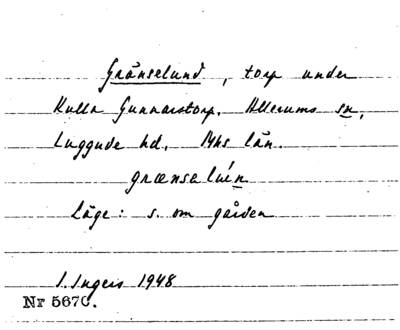 Gränselund, torp under
Kulla Gunnarstorp. Allerums sn,
Luggude hd. Mhs län.
grænsalún
Läge: s. om gården
I. Ingers 1948
Nr 5670.